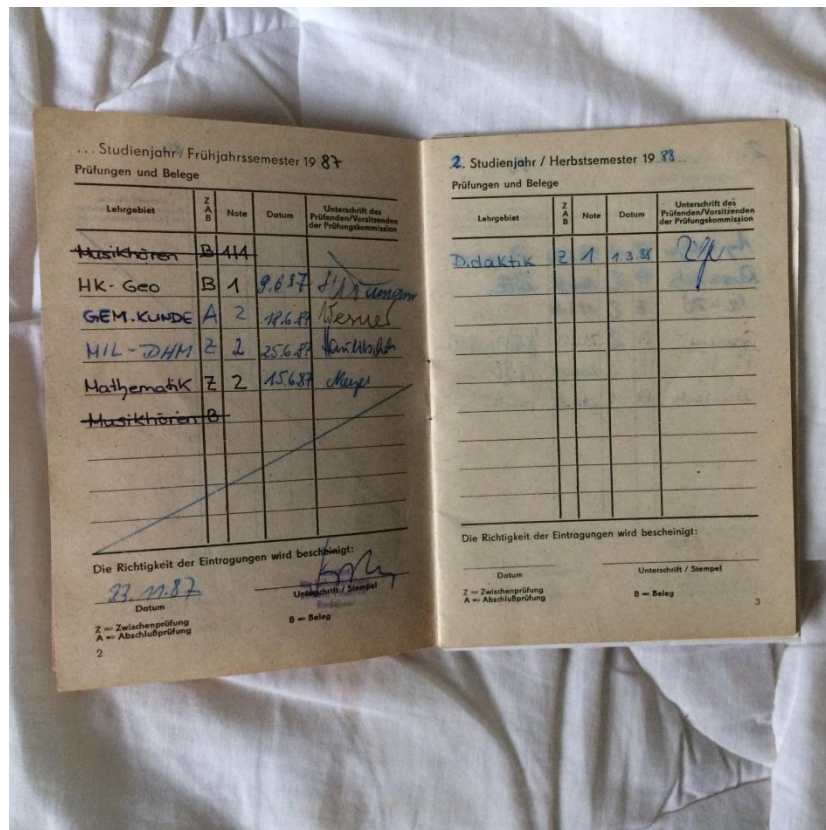 ... Studienjahr / Frühjahrssemester 19 87
Prüfungen und Belege
Lehrgebiet Z A B Note Datum Unterschrift des Prüfenden/Vorsitzenden der Prüfungskommission
Musikhören B
HK-Geo B 1 9.6.87
GEM.KUNDE A 2 18.6.87 Werner
MIL-DHM Z 2 25.6.87
Mathematik Z 2 15.6.87
Musikhören B
Die Richtigkeit der Eintragungen wird bescheinigt:
23.11.87
Datum Unterschrift / Stempel
Z = Zwischenprüfung
A = Abschlußprüfung B = Beleg
2
2. Studienjahr / Herbstsemester 19 88
Prüfungen und Belege
Lehrgebiet Z A B Note Datum Unterschrift des Prüfenden/Vorsitzenden der Prüfungskommission
Didaktik Z 1 1.3.88
Die Richtigkeit der Eintragungen wird bescheinigt:
Datum Unterschrift / Stempel
Z = Zwischenprüfung
A = Abschlußprüfung B = Beleg
3